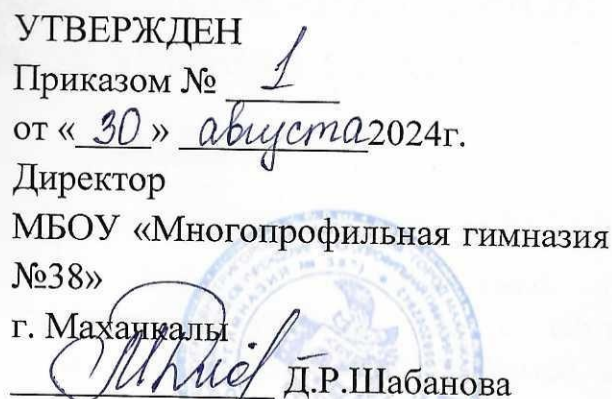 УТВЕРЖДЕН
Приказом № 1
от « 30 » августа 2024г.
Директор
МБОУ «Многопрофильная гимназия
№38»
г. Махачкалы
Д.Р.Шабанова